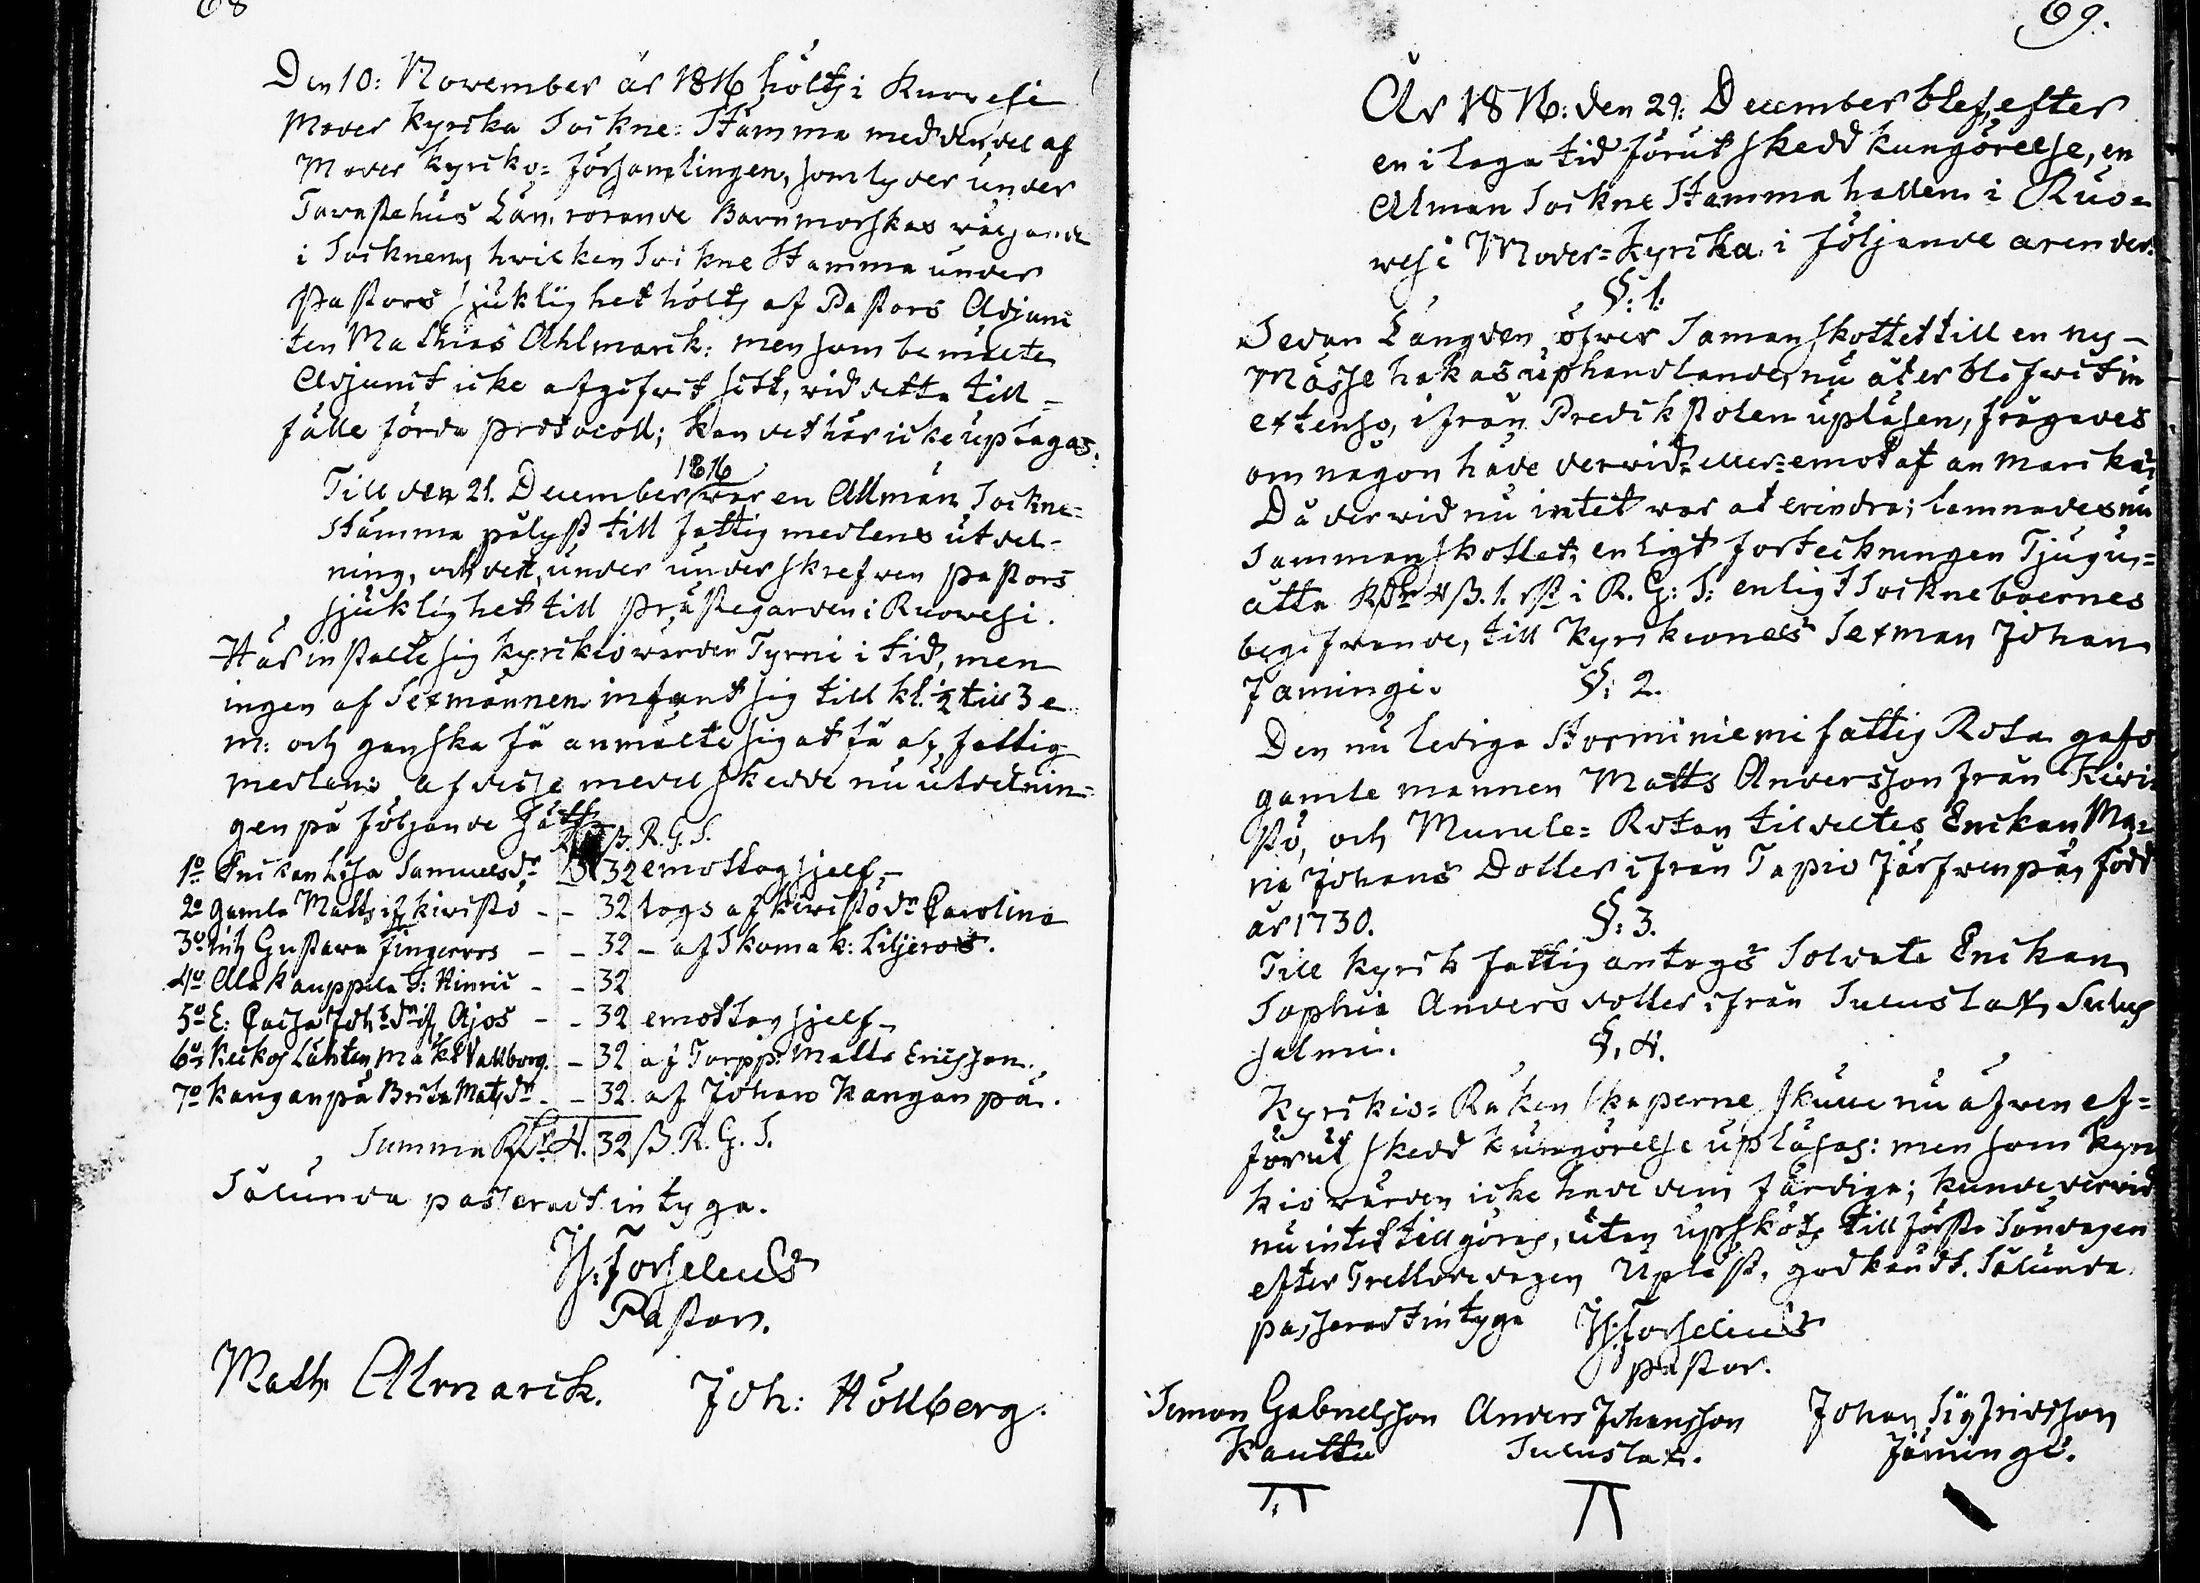 68
Den 10: November år 1816 hölts i Ruovesi
Moder Kyrcka Sockne-Stämma med den del af
Moder Kyrcko-församlingen, som lyder under
Tavastehus Län, rörande Barnmorskas wäljande
i Socknen, hwilken Sockne Stämma under
Pastors sjuklighet hölts af Pastors Adjunc
ten Mathias Ahlmarck: men som bemälte
Adjunct icke afgifwit sitt, wid detta till-
fälle förda protocoll; kan det här icke uptagas.
1816
Till den 21. December war en Allmän Sockne-
Stämma pålyst till fattig medlens utdel-
ning, och det, under underskrefwen Pastors
sjuklighet till Prästegården i Ruowesi.
Här instälte sig Kyrckiowärden Tyrni i tid, men
ingen af Sexmännen infant sig till kl. ½ till 3 e.
m: och ganska få anmälte sig at få af fattig
medlen: af desse medel skedde nu utdelnin-
gen på följande sätt
ß. R. G. S.
1o Enckan Lisa Samuelsdr - 32 emottog sjelf -
2o Gamla Matts if. Kivistö - - 32 togs af Kivistö dr Carolina
3o Inh Gustava Fingerroos - - 32 - af Skomak: Liljeroos.
4o Ala Kauppila S: Hinric - - 32
5o E: Caisa Johsdr if. Ajos - - 32 emottog sjelf -
6o Keikos Lähten Mäk: Vallborg. - 32 af Torpp: Matts Ericsson.
7o Kanganpä Brita Matsdr - - 32. af Johan Kanganpä.
Summa Rdr 4. 32 ß. R. G. S.
Sålunda passeradt intyga.
H: Forselius
Pastor.
Math Almarck. Joh: Höllberg.
69.
År 1816: den 29: December blef, efter
en i laga tid förut skedd kungörelse, en
Alman Sockne Stämma hållen i Ruo-
wesi Moder-Kyrcka i följande ärender.
§. 1.
Sedan Längden öfwer Samanskottet till en ny
Mässe hakas uphandlande, nu åter blifwit in
extenso, ifrån Predikstolen upläsen, frågades
om någon hade derwid- eller-emot at anmärcka:
Då der wid nu intet war at erindra; lämnades nu
Sammanskottet, enligt forteckningen Tjugu-
åtta Rdr 4 ß. 1. rst i R. G: S: enligt Sockneboernes
begifwande, till Kyrckiones Sexman Johan
Jämingi. §: 2.
Den nu lediga Storminiemi fattig Rota gafs
gamle mannen Matts Andersson från Kivis
tö, och Murule-Rotan tildeltes Enckan Ma-
ria Johans Dotter ifrån Tapio Järfwenpä, född
år 1730. §: 3.
Till Kyrck fattig antogs Soldate Enckan
Sophia Anders dotter ifrån Suluslax, Sulus
salmi. §. 4.
Kyrckio-Räkenskaperne skulle nu äfwen ef-
förut skedd kungörelse upläsas: men som Kyrc
kio wärden icke hade dem färdiga; kunde derwid
nu intet tillgöras, utan upsköts till första Söndagen
efter Trettondedagen. Upläst, godkändt. Sålunda
passeradt intyga H: Forselius
Pastor.
Simon Gabrielsson Anders Johansson Johan Sigfridsson
Kauttu Suluslax. Jämingi.